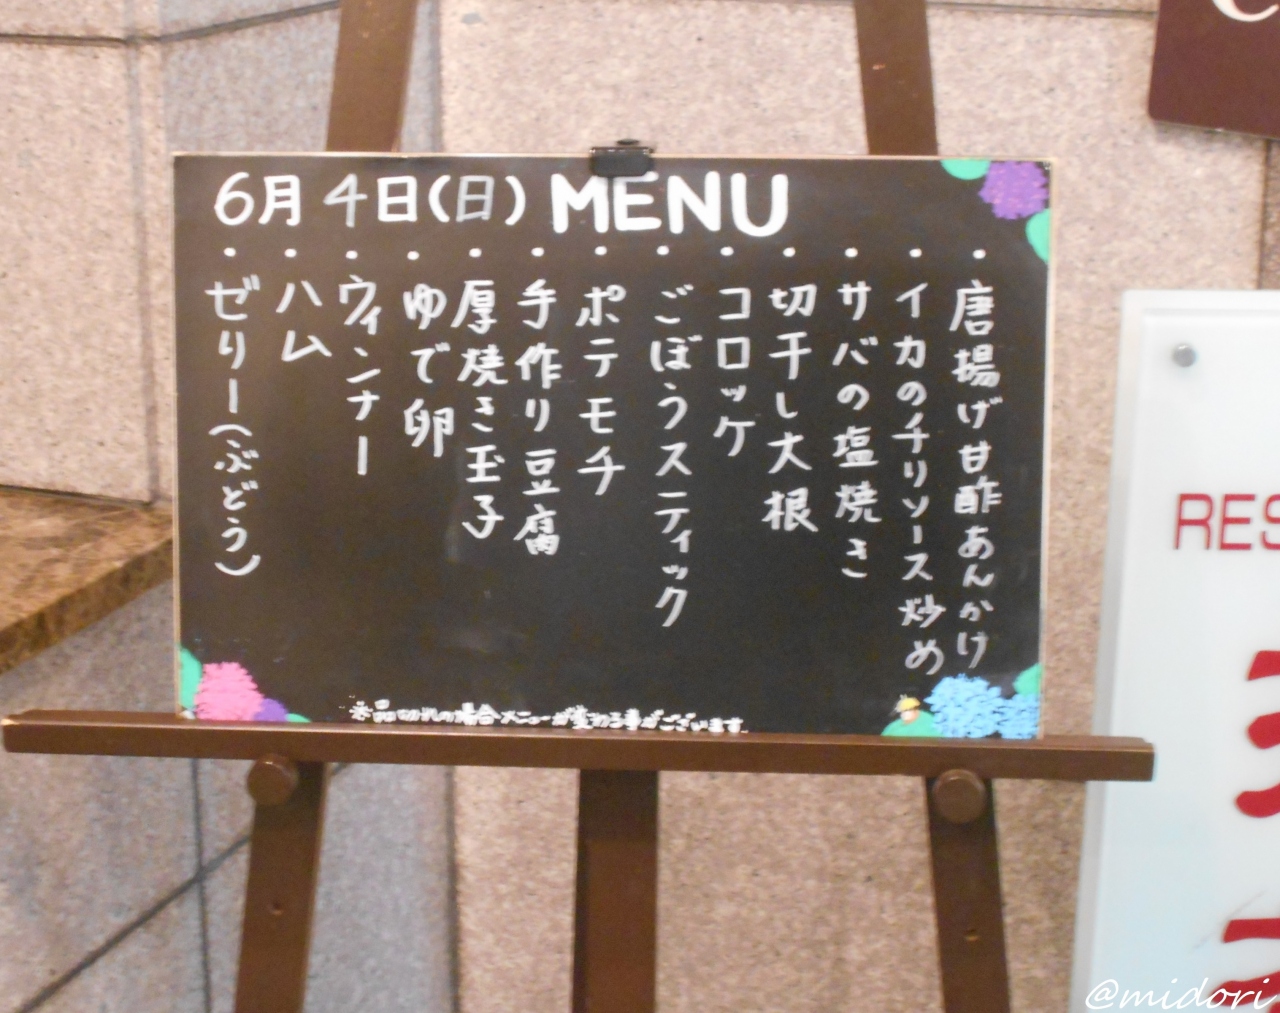 6月4日(日) MENU
・唐揚げ甘酢あんかけ
・イカのチリソース炒め
・サバの塩焼き
・切干し大根
・コロッケ
・ごぼうスティック
・ポテモチ
・手作り豆腐
・厚焼き玉子
・ゆで卵
・ウィンナー
・ハム
・ゼリー(ぶどう)
※品切れの場合メニューが変わる事がございます。
RES
@midori